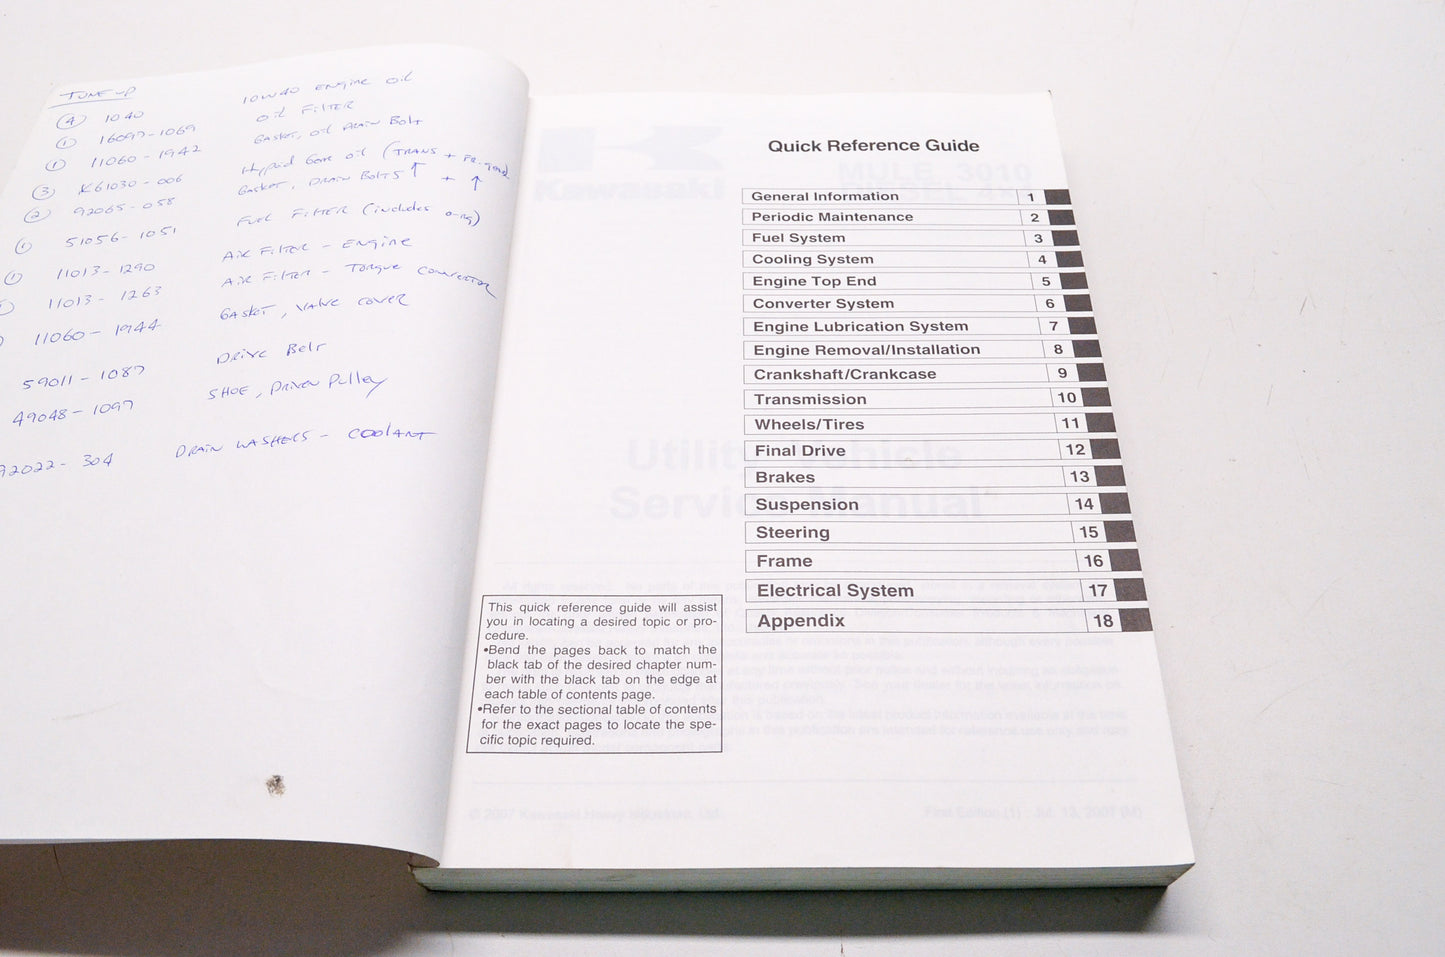 TUNE UP
④ 1040 10W40 ENGINE OIL
① 16097-1069 OIL FILTER
① 11060-1942 GASKET, OIL DRAIN BOLT
③ K61030-006 Hypoid Gear oil (TRANS + FR. gear)
② 92065-058 GASKET, DRAIN BOLTS ↑ + ↑
① 51056-1051 FUEL FILTER (includes o-ring)
① 11013-1290 AIR FILTER - ENGINE
11013-1263 AIR FILTER - TORQUE CONVERTOR
11060-1944 GASKET, VALVE COVER
59011-1087 DRIVE Belt
49048-1097 SHOE, DRIVEN PULLEY
92022-304 DRAIN WASHERS - COOLANT
Quick Reference Guide
General Information 1
Periodic Maintenance 2
Fuel System 3
Cooling System 4
Engine Top End 5
Converter System 6
Engine Lubrication System 7
Engine Removal/Installation 8
Crankshaft/Crankcase 9
Transmission 10
Wheels/Tires 11
Final Drive 12
Brakes 13
Suspension 14
Steering 15
Frame 16
Electrical System 17
Appendix 18
This quick reference guide will assist
you in locating a desired topic or pro-
cedure.
•Bend the pages back to match the
black tab of the desired chapter num-
ber with the black tab on the edge at
each table of contents page.
•Refer to the sectional table of contents
for the exact pages to locate the spe-
cific topic required.
Kawasaki
MULE 3010
DIESEL 4x4
Utility Vehicle
Service Manual
© 2007 Kawasaki Heavy Industries, Ltd.
First Edition (1) : Jul. 13, 2007 (M)